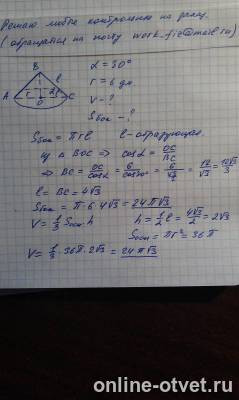 Решаю любые контрольные на заказ
(обращаться на почту work-fic@mail.ru)
B
l
A
r
α
C
O
α = 30°
r = 6 дм.
V - ?
Sбок - ?
Sбок = πrl    l - образующая.
из Δ BOC => cosα = OC/BC
=> BC = OC/cosα = 6/cos30° = 6/(√3/2) = 12/√3 = 12√3/3
l = BC = 4√3
Sбок = π·6·4√3 = 24π√3
V = 1/3 Sосн. h    h = 1/2 l = 4√3/2 = 2√3
Sосн = πr² = 36π
V = 1/3 · 36π · 2√3 = 24π√3
online-otvet.ru